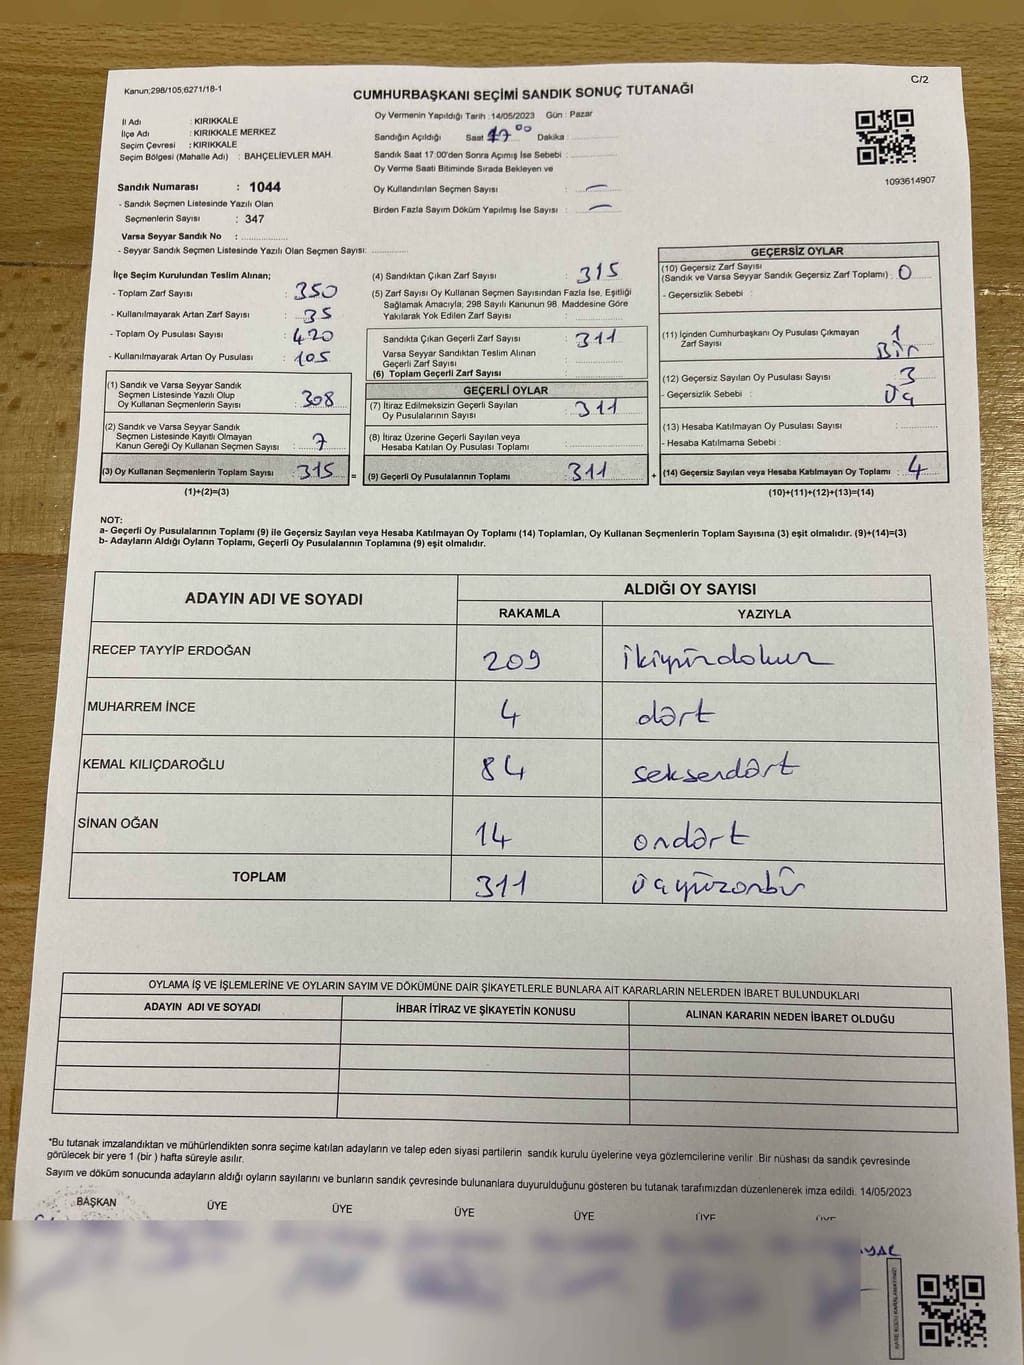 Kanun;298/105;6271/18-1
C/2
CUMHURBAŞKANI SEÇİMİ SANDIK SONUÇ TUTANAĞI
İl Adı : KIRIKKALE
İlçe Adı : KIRIKKALE MERKEZ
Seçim Çevresi : KIRIKKALE
Seçim Bölgesi (Mahalle Adı) : BAHÇELİEVLER MAH.
Sandık Numarası : 1044
- Sandık Seçmen Listesinde Yazılı Olan
Seçmenlerin Sayısı : 347
Varsa Seyyar Sandık No :
- Seyyar Sandık Seçmen Listesinde Yazılı Olan Seçmen Sayısı:
Oy Vermenin Yapıldığı Tarih : 14/05/2023 Gün : Pazar
Sandığın Açıldığı Saat 17 00 Dakika :
Sandık Saat 17:00'den Sonra Açımış İse Sebebi :
Oy Verme Saati Bitiminde Sırada Bekleyen ve
Oy Kullandırılan Seçmen Sayısı : —
Birden Fazla Sayım Döküm Yapılmış İse Sayısı : —
1093614907
İlçe Seçim Kurulundan Teslim Alınan;
- Toplam Zarf Sayısı : 350
- Kullanılmayarak Artan Zarf Sayısı : 35
- Toplam Oy Pusulası Sayısı : 420
- Kullanılmayarak Artan Oy Pusulası : 105
(1) Sandık ve Varsa Seyyar Sandık
Seçmen Listesinde Yazılı Olup
Oy Kullanan Seçmenlerin Sayısı : 308
(2) Sandık ve Varsa Seyyar Sandık
Seçmen Listesinde Kayıtlı Olmayan
Kanun Gereği Oy Kullanan Seçmen Sayısı : 7
(3) Oy Kullanan Seçmenlerin Toplam Sayısı : 315
(1)+(2)=(3)
(4) Sandıktan Çıkan Zarf Sayısı : 315
(5) Zarf Sayısı Oy Kullanan Seçmen Sayısından Fazla İse, Eşitliği
Sağlamak Amacıyla; 298 Sayılı Kanunun 98. Maddesine Göre
Yakılarak Yok Edilen Zarf Sayısı :
Sandıkta Çıkan Geçerli Zarf Sayısı : 311
Varsa Seyyar Sandıktan Teslim Alınan
Geçerli Zarf Sayısı
(6) Toplam Geçerli Zarf Sayısı :
GEÇERLİ OYLAR
(7) İtiraz Edilmeksizin Geçerli Sayılan
Oy Pusulalarının Sayısı : 311
(8) İtiraz Üzerine Geçerli Sayılan veya
Hesaba Katılan Oy Pusulası Toplamı :
= (9) Geçerli Oy Pusulalarının Toplamı : 311 +
GEÇERSİZ OYLAR
(10) Geçersiz Zarf Sayısı
(Sandık ve Varsa Seyyar Sandık Geçersiz Zarf Toplamı) : 0
- Geçersizlik Sebebi :
(11) İçinden Cumhurbaşkanı Oy Pusulası Çıkmayan
Zarf Sayısı : 1
Bir
(12) Geçersiz Sayılan Oy Pusulası Sayısı : 3
- Geçersizlik Sebebi : Üç
(13) Hesaba Katılmayan Oy Pusulası Sayısı :
- Hesaba Katılmama Sebebi :
(14) Geçersiz Sayılan veya Hesaba Katılmayan Oy Toplamı : 4
(10)+(11)+(12)+(13)=(14)
NOT:
a- Geçerli Oy Pusulalarının Toplamı (9) ile Geçersiz Sayılan veya Hesaba Katılmayan Oy Toplamı (14) Toplamları, Oy Kullanan Seçmenlerin Toplam Sayısına (3) eşit olmalıdır. (9)+(14)=(3)
b- Adayların Aldığı Oyların Toplamı, Geçerli Oy Pusulalarının Toplamına (9) eşit olmalıdır.
ADAYIN ADI VE SOYADI
ALDIĞI OY SAYISI
RAKAMLA YAZIYLA
RECEP TAYYİP ERDOĞAN 209 ikiyüzdokuz
MUHARREM İNCE 4 dört
KEMAL KILIÇDAROĞLU 84 seksendört
SİNAN OĞAN 14 ondört
TOPLAM 311 üçyüzonbir
OYLAMA İŞ VE İŞLEMLERİNE VE OYLARIN SAYIM VE DÖKÜMÜNE DAİR ŞİKAYETLERLE BUNLARA AİT KARARLARIN NELERDEN İBARET BULUNDUKLARI
ADAYIN ADI VE SOYADI İHBAR İTİRAZ VE ŞİKAYETİN KONUSU ALINAN KARARIN NEDEN İBARET OLDUĞU
*Bu tutanak imzalandıktan ve mühürlendikten sonra seçime katılan adayların ve talep eden siyasi partilerin sandık kurulu üyelerine veya gözlemcilerine verilir .Bir nüshası da sandık çevresinde
görülecek bir yere 1 (bir ) hafta süreyle asılır.
Sayım ve döküm sonucunda adayların aldığı oyların sayılarını ve bunların sandık çevresinde bulunanlara duyurulduğunu gösteren bu tutanak tarafımızdan düzenlenerek imza edildi. 14/05/2023
BAŞKAN ÜYE ÜYE ÜYE ÜYE ÜYE ÜYE